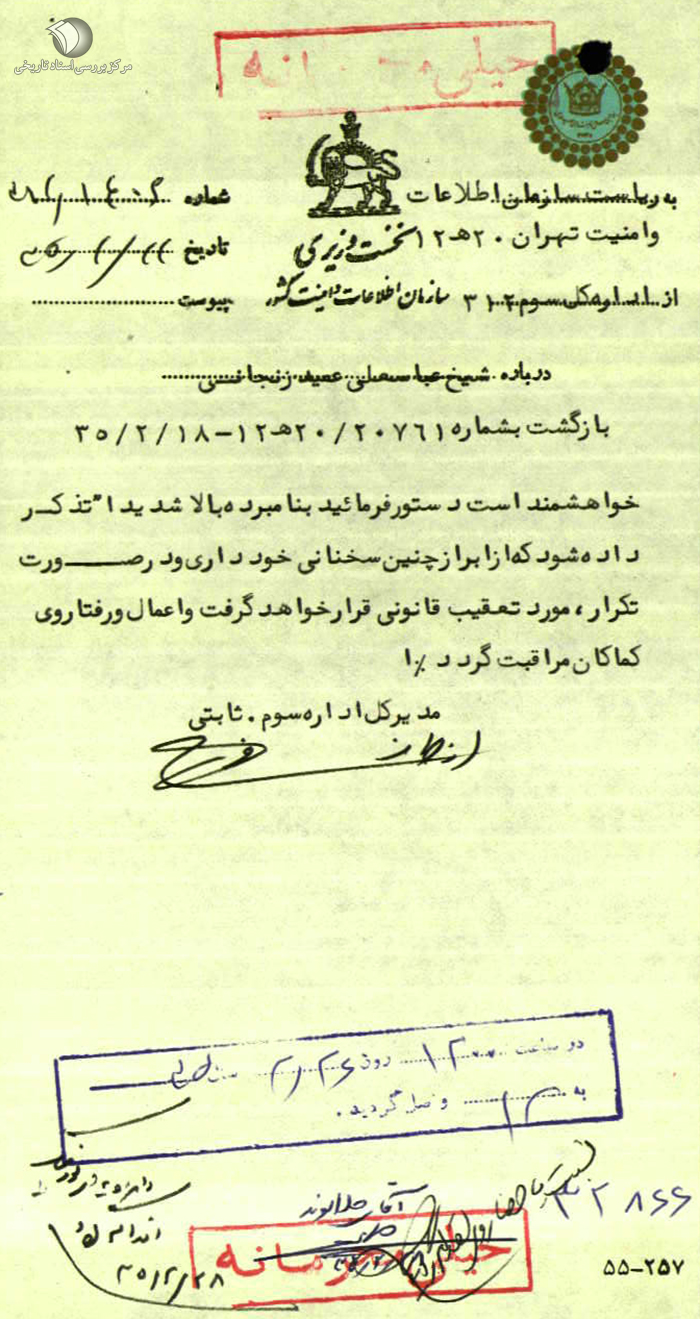 مرکز بررسی اسناد تاریخی
خیلی محرمانه
به ریاست سازمان اطلاعات
وامنیت تهران ۲۰هـ۱۲
از اداره کل سوم ۳۱۲
نخست وزیری
سازمان اطلاعات و امنیت کشور
شماره
تاریخ
پیوست
درباره شیخ عباسعلی عمید زنجانی
بازگشت بشماره ۲۰۷۶۱/۲۰هـ۱۲-۳۵/۲/۱۸
خواهشمند است دستور فرمائید بنامبرده بالا شدیدا" تذکر
داده شود که از ابراز چنین سخنانی خودداری و در صورت
تکرار، مورد تعقیب قانونی قرار خواهد گرفت و اعمال و رفتار وی
کماکان مراقبت گردد ٪ا
مدیرکل اداره سوم. ثابتی
در ساعت ۱۲۰۰ روز ۲/۲۶
به ۱۲ واصل گردید.
۳۲۸۶۶
آقای جلالوند
اقدام شد
۳۵/۲/۲۸
خیلی محرمانه
۵۵-۲۵۷